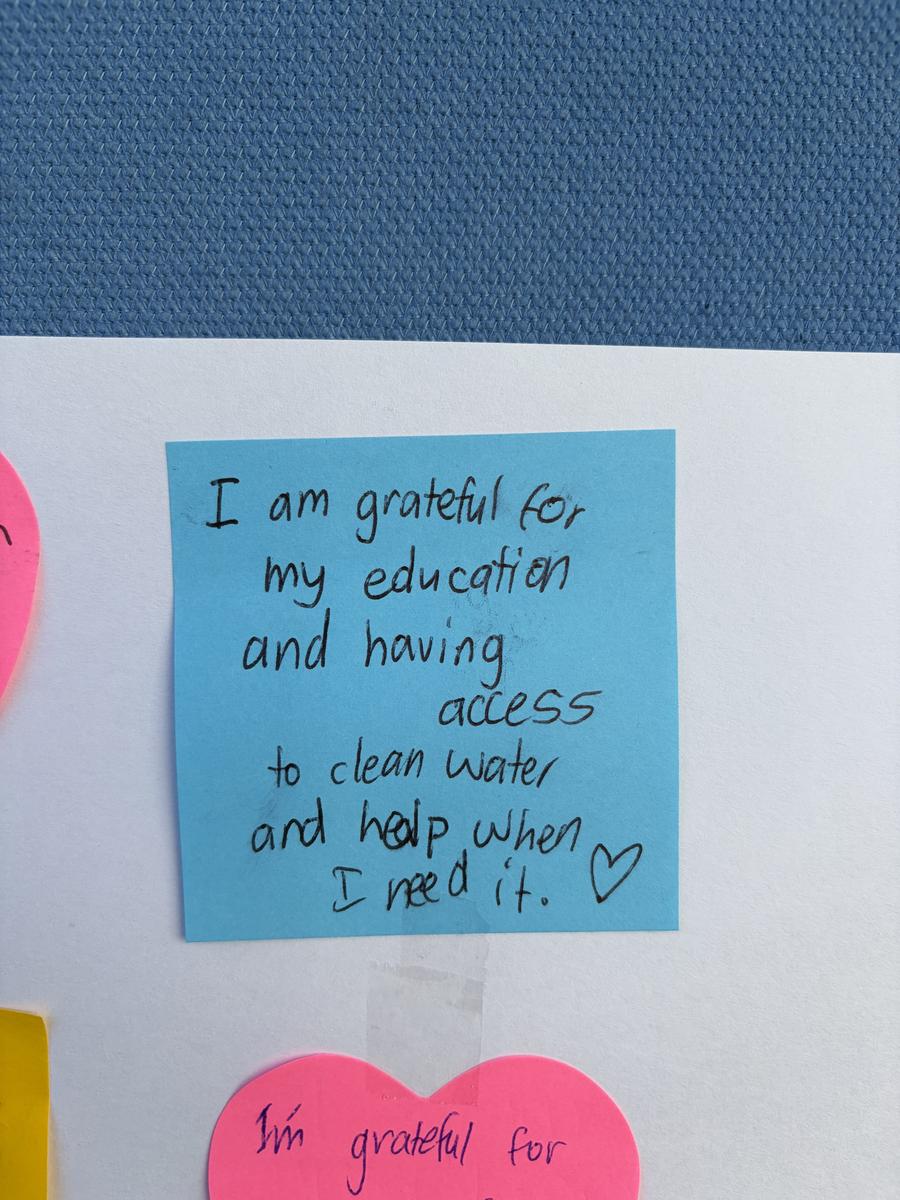 I am grateful for
my education
and having
access
to clean water
and help when
I need it. ♡
I'm grateful for